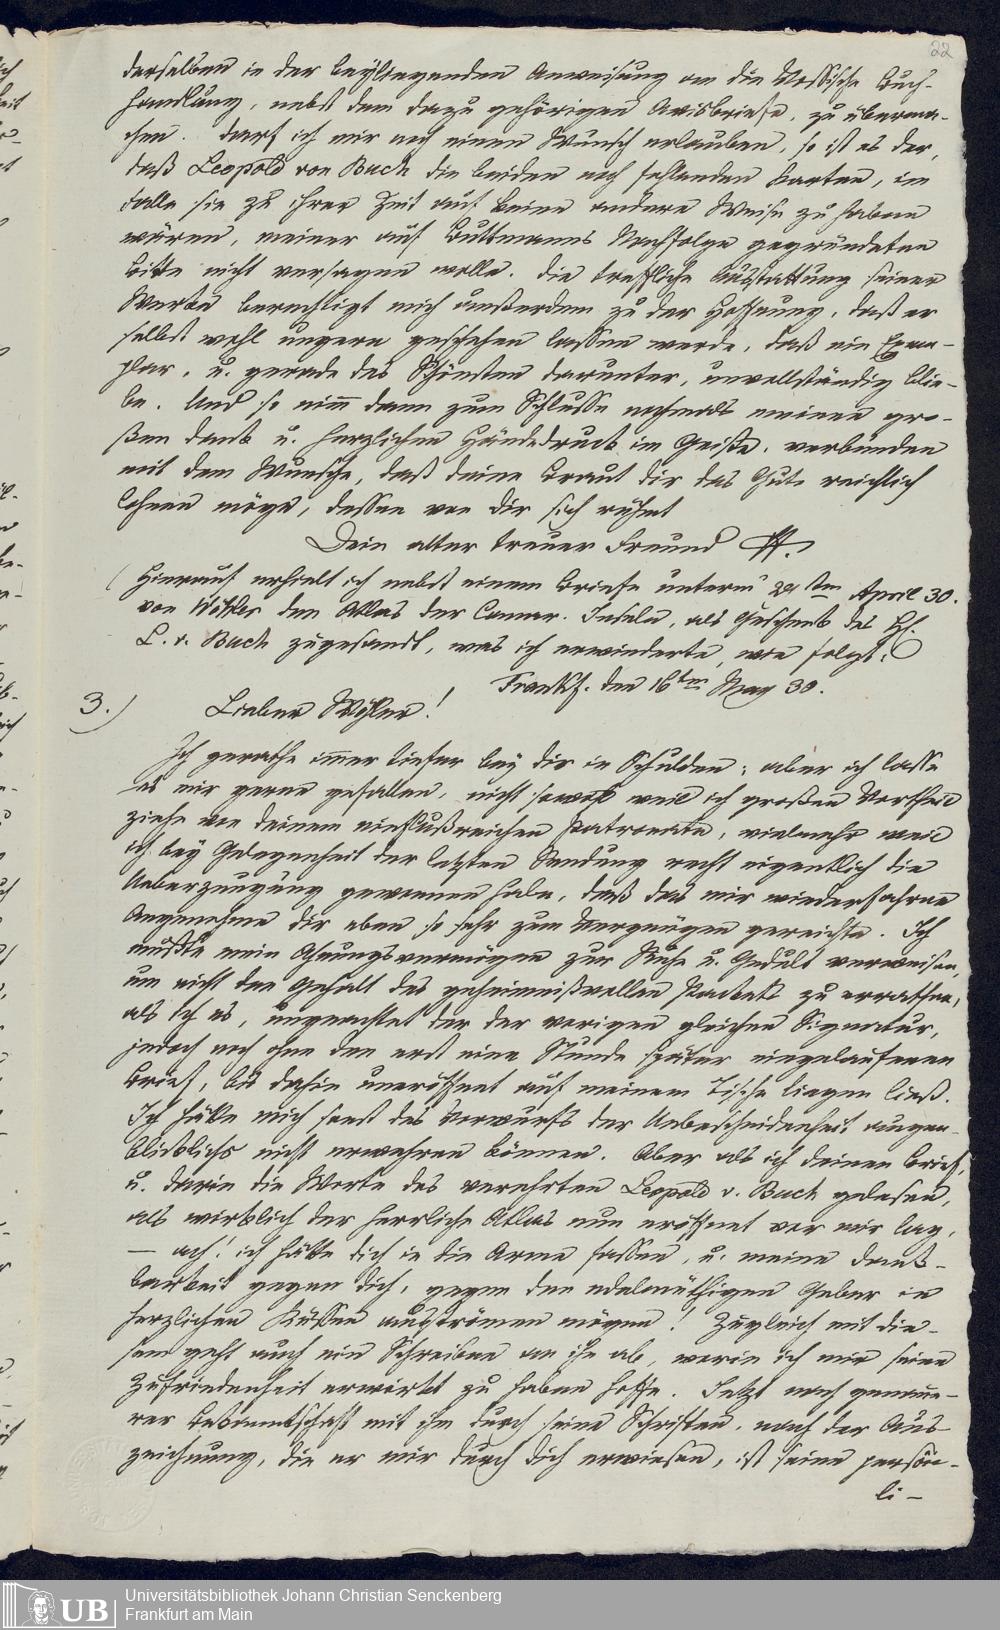 22
derselben in der beyliegenden Anweisung an die Vossische Buch-
handlung, nebst dem dazu gehörigen Avisbriefe, zu überma-
chen. Darf ich mir noch einen Wunsch erlauben, so ist es der,
daß Leopold von Buch die beiden noch fehlenden Karten, im
Falle sie zu ihrer Zeit auf keine andere Weise zu haben
wären, meiner auf Buttmanns Nachfolge gegründeten
Bitte nicht versagen wolle. Die treffliche Ausstattung seiner
Werke berechtigt mich außerdem zu der Hoffnung, daß er
selbst wohl ungern geschehen lassen werde, daß ein Exem-
plar, u. gerade des Schönsten darunter, unvollständig blie-
be. Und so nim̅ dann zum Schlusse nochmals meinen gro-
ßen Dank u. herzlichen Händedruck im Geiste, verbunden
mit dem Wunsche, daß deine Braut dir das Gute reichlich
lohnen möge, dessen von dir sich rühmt
Dein alter treuer Freund
(Hierauf erhielt ich nebst einem Briefe unterm 29sten April 30.
von Wöhler den Atlas der Canar. Inseln, als Geschenk des H.
L. v. Buch zugesandt, was ich erwiederte, wie folgt:)
Frankf. den 16ten May 30.
3.) Lieber Wöhler!
Ich gerathe im̅er tiefer bey dir in Schulden; aber ich lasse
es mir gerne gefallen, nicht sowohl weil ich großen Vortheil
ziehe von deinem einflußreichen Patronate, vielmehr weil
ich bey Gelegenheit der letzten Sendung recht eigentlich die
Ueberzeugung gewonnen habe, daß das mir wiederfahrne
Angenehme dir eben so sehr zum Vergnügen gereichte. Ich
mußte mein Ahnungsvermögen zur Ruhe u. Geduld verweisen,
um nicht den Gehalt des geheimnißvollen Packets zu errathen,
als ich es, ungeachtet der der vorigen gleichen Signatur,
jedoch noch ohne den erst eine Stunde später eingelaufenen
Brief, bis dahin uneröffnet auf meinem Tische liegen ließ.
Ich hätte mich sonst des Vorwurfs der Unbescheidenheit augen-
blicklichs nicht erwehren können. Aber als ich deinen Brief,
u. darin die Worte des verehrten Leopold v. Buch gelesen,
als wirklich der herrliche Atlas nun eröffnet vor mir lag,
– ach! ich hätte dich in die Arme fassen, u. meine Dank-
barkeit gegen dich, gegen den edelmüthigen Geber in
herzlichen Küssen ausströmen mögen! Zugleich mit die-
sem geht auch ein Schreiben an ihn ab, worin ich mir seine
Zufriedenheit erwirkt zu haben hoffe. Jetzt nach genaue-
rer Bekanntschaft mit ihm durch seine Schriften, nach der Aus-
zeichnung, die er mir durch dich erwiesen, ist seine persön-
li-
UB
Universitätsbibliothek Johann Christian Senckenberg
Frankfurt am Main